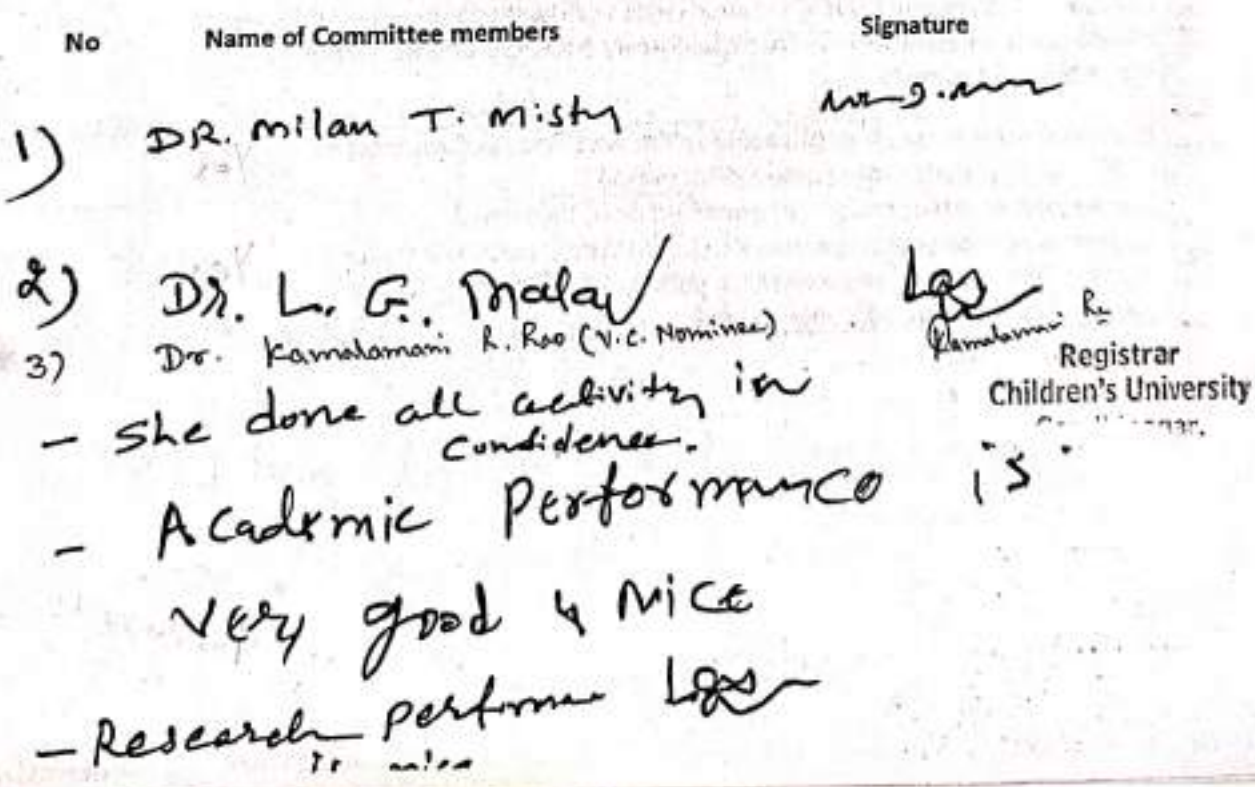 No Name of Committee members Signature
1) DR. Milan T. Mistry
2) Dr. L. G. Malav
3) Dr. Kamalamani R. Rao (V.C. Nominee) Kamalamani R
Registrar
Children's University
- She done all activity in
confidence.
- Academic Performance is
very good & Nice
- Research performe
is nice